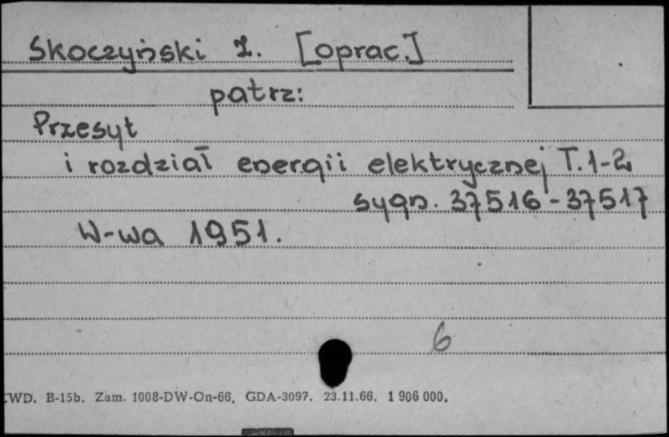 Skoczyński Z. [oprac.]
patrz:
Przesył
i rozdział energii elektrycznej T.1-2
sygn. 37516-37517
W-wa 1951.
6
ZWD. B-15b. Zam. 1008-DW-On-66. GDA-3097. 23.11.66. 1 906 000.